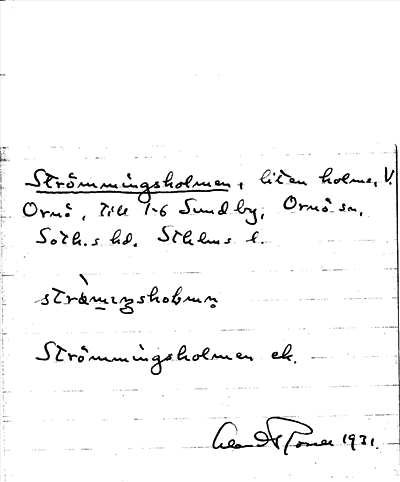 Strömmingsholmen, liten holme, V.
Ornö, till 1-6 Sundby, Ornö sn,
Soth.s hd. Sthlms l.
Strömmingsholmen ek.
1931.